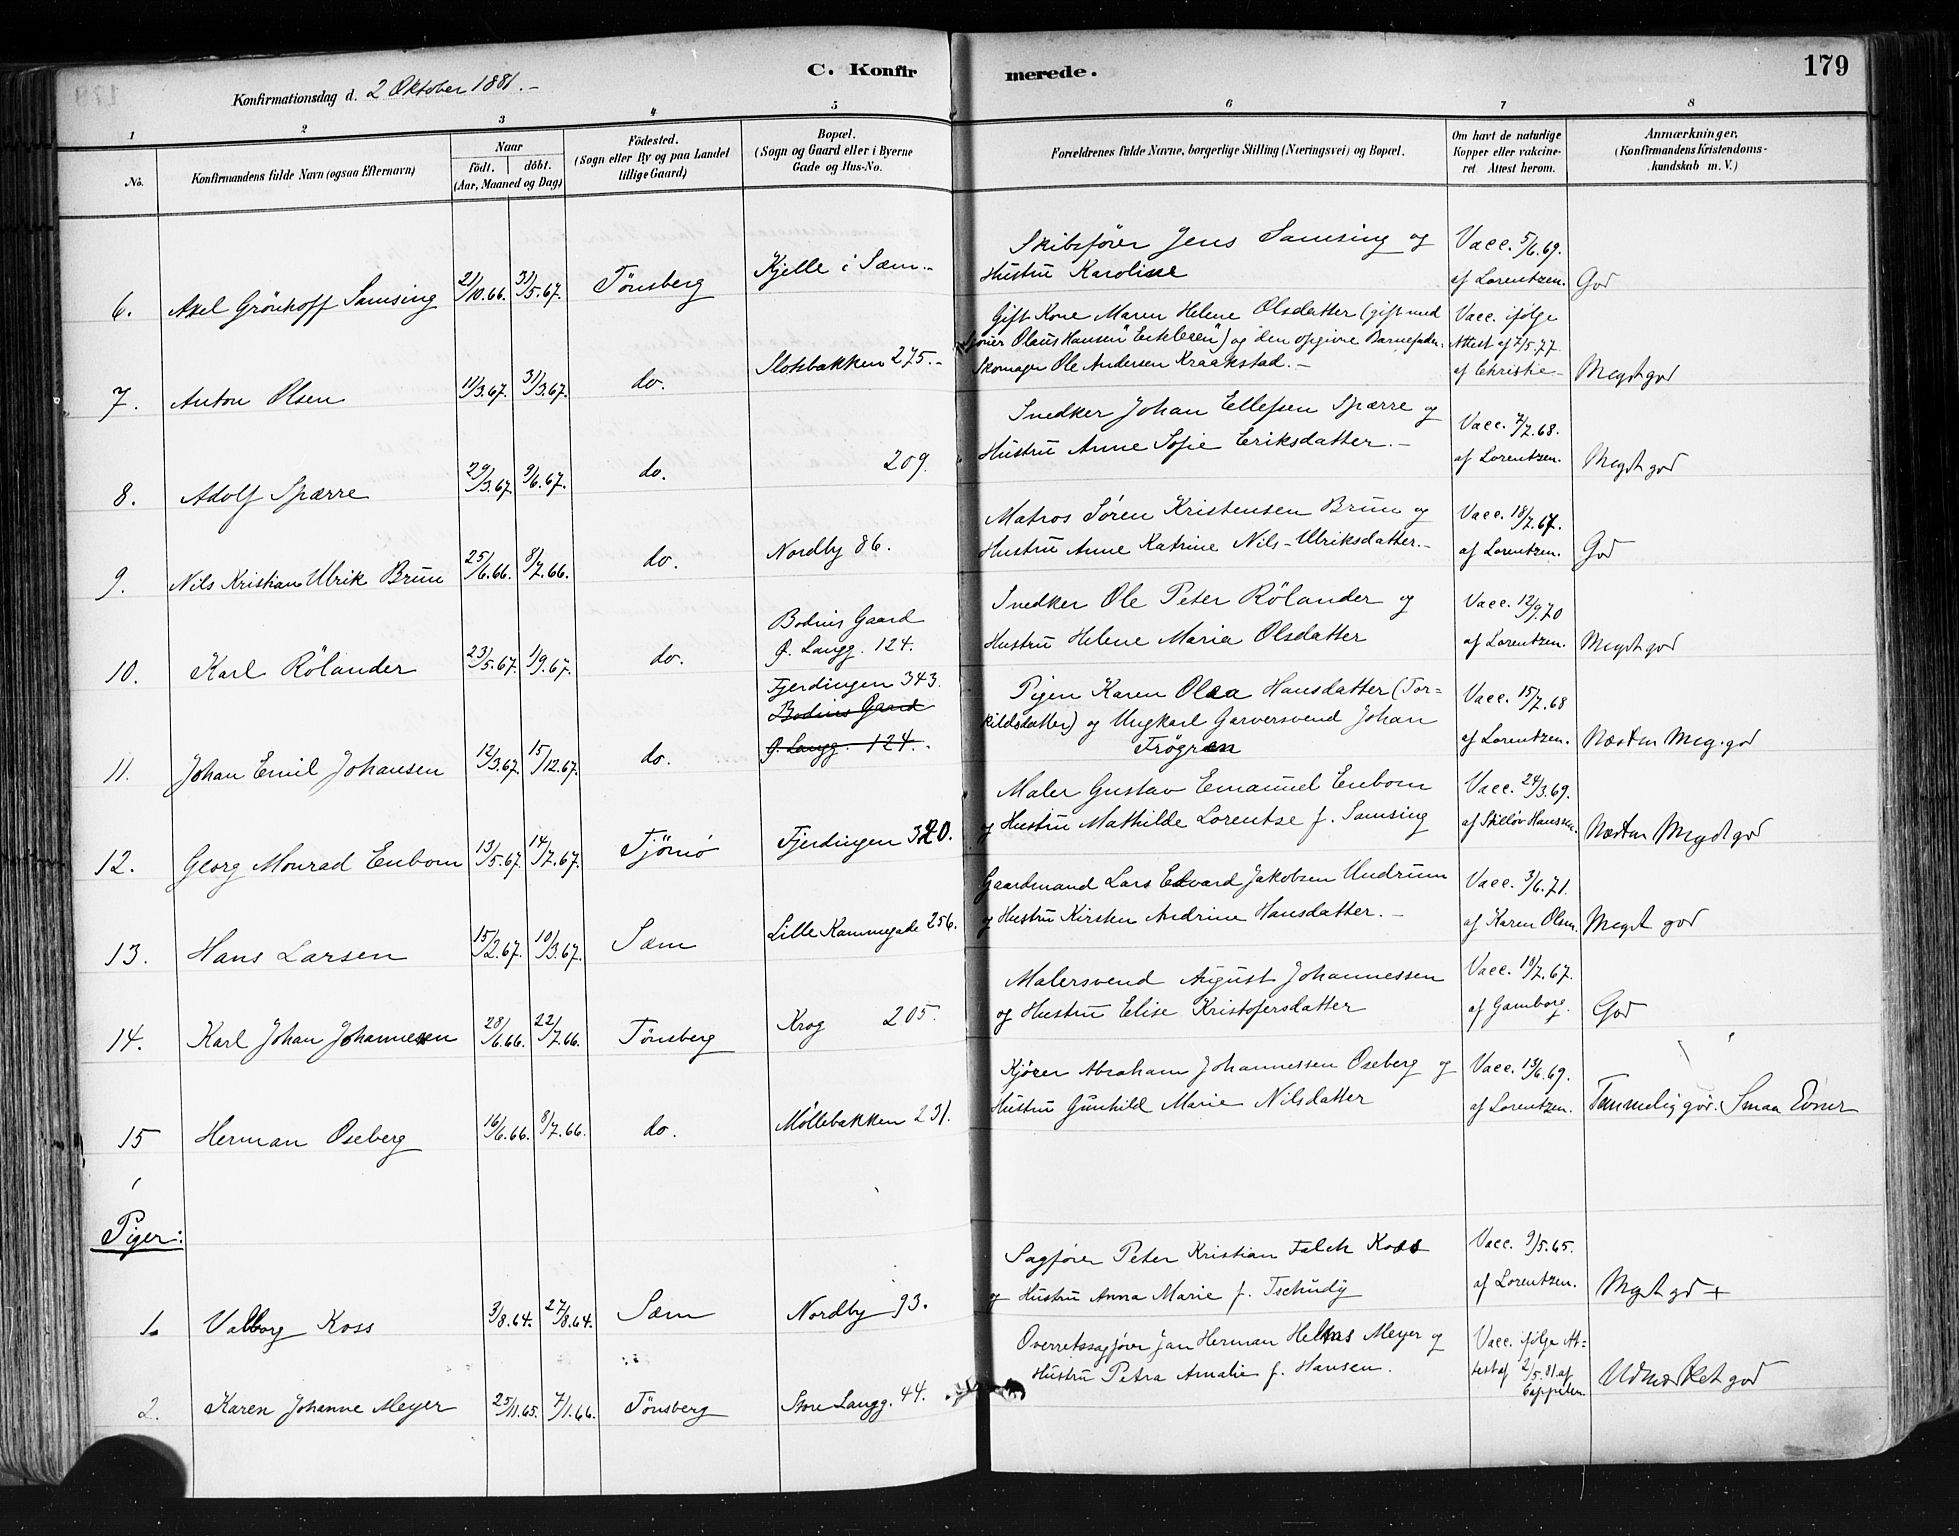 C. Konfirmerede. 179
Konfirmationsdag d. 2 Oktober 1881.-
1 2 3 4 5 6 7 8
No. Konfirmandens fulde Navn (ogsaa Efternavn) Naar født. døbt. (Aar, Maaned og Dag) Födested. (Sogn eller By og paa Landet tillige Gaard) Bopæl. (Sogn og Gaard eller i Byerne Gade og Hus-No. Forældrenes fulde Navne, borgerlige Stilling (Næringsvei) og Bopæl. Om havt de naturlige Kopper eller vaccineret Attest herom. Anmærkninger, (Konfirmandens Kristendomskundskab m. V.)
Skibsfører Jens Samsing og Vacc. 5/6.69.
6. Axel Grönhoff Samsing 21/10.66. 31/5.67. Tönsberg Kjelle i Sæm.- Hustru Karoline af Lorentzen. God
Gift Kone Maren Helene Olsdatter (gift med Vacc. ifølge
Olaus Hansen) og den opgivne Barnefader Attest af 7/5.77
7. Anton Olsen 11/3.67. 31/3.67. do. Slotsbakken 275.- Skomager Ole Andersen Kraakstad.- af Christie- Meget god
Snedker Johan Ellefsen Spærre og Vacc. 7/7.68.
8. Adolf Spærre 29/3.67. 9/6.67. do. 209. Hustru Anne Sofie Eriksdatter.- af Lorentzen. Meget god
Matros Sören Kristensen Brun og Vacc. 18/7.67.
9. Nils Kristian Ulrik Brun 25/6.66. 8/7.66. do. Nordby 86. Hustru Anne Katrine Nils-Ulriksdatter.- af Lorentzen. God
Bodins Gaard Snedker Ole Peter Rölander og Vacc. 12/9.70
10. Karl Rölander 23/5.67. 1/9.67. do. Ø. Langg. 124. Hustru Helene Maria Olsdatter af Lorentzen. Meget god
Fjerdingen 343. Pigen Karen Olea Hansdatter (Tor=
Bodins Gaard kildsdatter) og Ungkarl Garversvend Johan Vacc. 15/7.68
11. Johan Emil Johansen 12/3.67. 15/12.67. do. Ø. Langg. 124. Frögren af Lorentzen. Næsten Meg. god
Maler Gustav Emanuel Enbom Vacc. 24/3.69.
12. Georg Monrad Enbom 13/5.67. 14/7.67. Tjömö Fjerdingen 320. og Hustru Mathilde Lorentse f. Samsing af Hanssen. Næsten Meget god
Gaardmand Lars Edvard Jakobsen Undrum Vacc. 3/6.71.
13. Hans Larsen 15/2.67. 10/3.67. Sæm Lille Kammegade 256. og Hustru Kirsten Andrine Hansdatter.- af Karen Olsen. Meget god
Malersvend August Johannessen Vacc. 19/7.67.
14. Karl Johan Johannesen 28/6.66. 22/7.66. Tönsberg Krog 205. og Hustru Elise Kristofersdatter af Gamborg. God
Kjører Abraham Johannessen Oseberg og Vacc. 13/6.69.
15 Herman Oseberg 16/6.66. 8/7.66. do. Möllebakken 231. Hustru Gunhild Marie Nilsdatter af Lorentzen. Temmelig god. Smaa Evner
Piger:
Sagfører Peter Kristian Falch Koss Vacc. 9/5.65.
1. Valborg Koss 3/8.64. 27/8.64. Sæm Nordby 93. og Hustru Anna Marie f. Tschudy af Lorentzen. Meget god +
Overretssagfører Jan Herman Helmas Meyer og Vacc. ifølge At=
2. Karen Johanne Meyer 25/11.65. 7/1.66. Tönsberg Store Langg. 44. Hustru Petra Amalie f. Hansen. test af 2/5.81 af Cappelen. Udmærket god